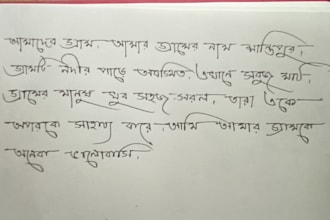 আমাদের গ্রাম. আমার গ্রামের নাম শান্তিপুর।
গ্রামটি নদীর পাড়ে অবস্থিত. এখানে সবুজ মাঠ,
গ্রামের মানুষ খুব সহজ-সরল, তারা একে
অপরকে সাহায্য করে. আমি আমার গ্রামকে
অনেক ভালোবাসি.